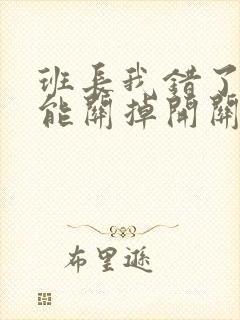 班長我錯了
能關掉開關
布里遜